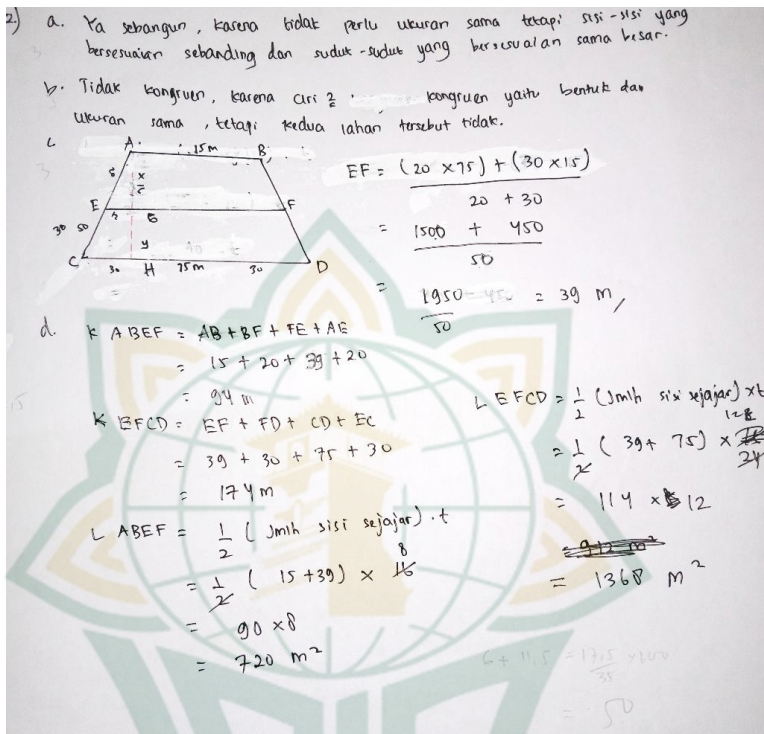 2.) a. Ya sebangun, karena tidak perlu ukuran sama tetapi sisi-sisi yang
bersesuaian sebanding dan sudut-sudut yang bersesuaian sama besar.
b. Tidak kongruen, karena ciri 2 kongruen yaitu bentuk dan
ukuran sama, tetapi kedua lahan tersebut tidak.
c
A 15m B
x
E F
y
30 50
C 30 H 75m 30 D
EF = (20 × 75) + (30 × 15)
20 + 30
= 1500 + 450
50
= 1950 = 39 m
50
d. K ABEF = AB + BF + FE + AE
= 15 + 20 + 39 + 20
= 94 m
K EFCD = EF + FD + CD + EC
= 39 + 30 + 75 + 30
= 174 m
L ABEF = 1/2 (Jmlh sisi sejajar) . t
= 1/2 (15 + 39) × 16 8
= 90 × 8
= 720 m²
L EFCD = 1/2 (Jmlh sisi sejajar) × t
= 1/2 (39 + 75) × 24 12
= 114 × 12
= 912 m²
= 1368 m²
6 + 11,5 = 17,5 × 100
35
= 50